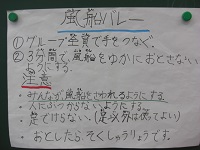 風船バレー
①グループ全員で手をつなぐ。
②3分間で、風船をゆかにおとさない
ようにする。
注意
・みんなが風船をさわれるようにする
・人にぶつからないようにする。
・足でけらない。(足以外は使ってよい)
おとしたらそくしゅうりょうです。